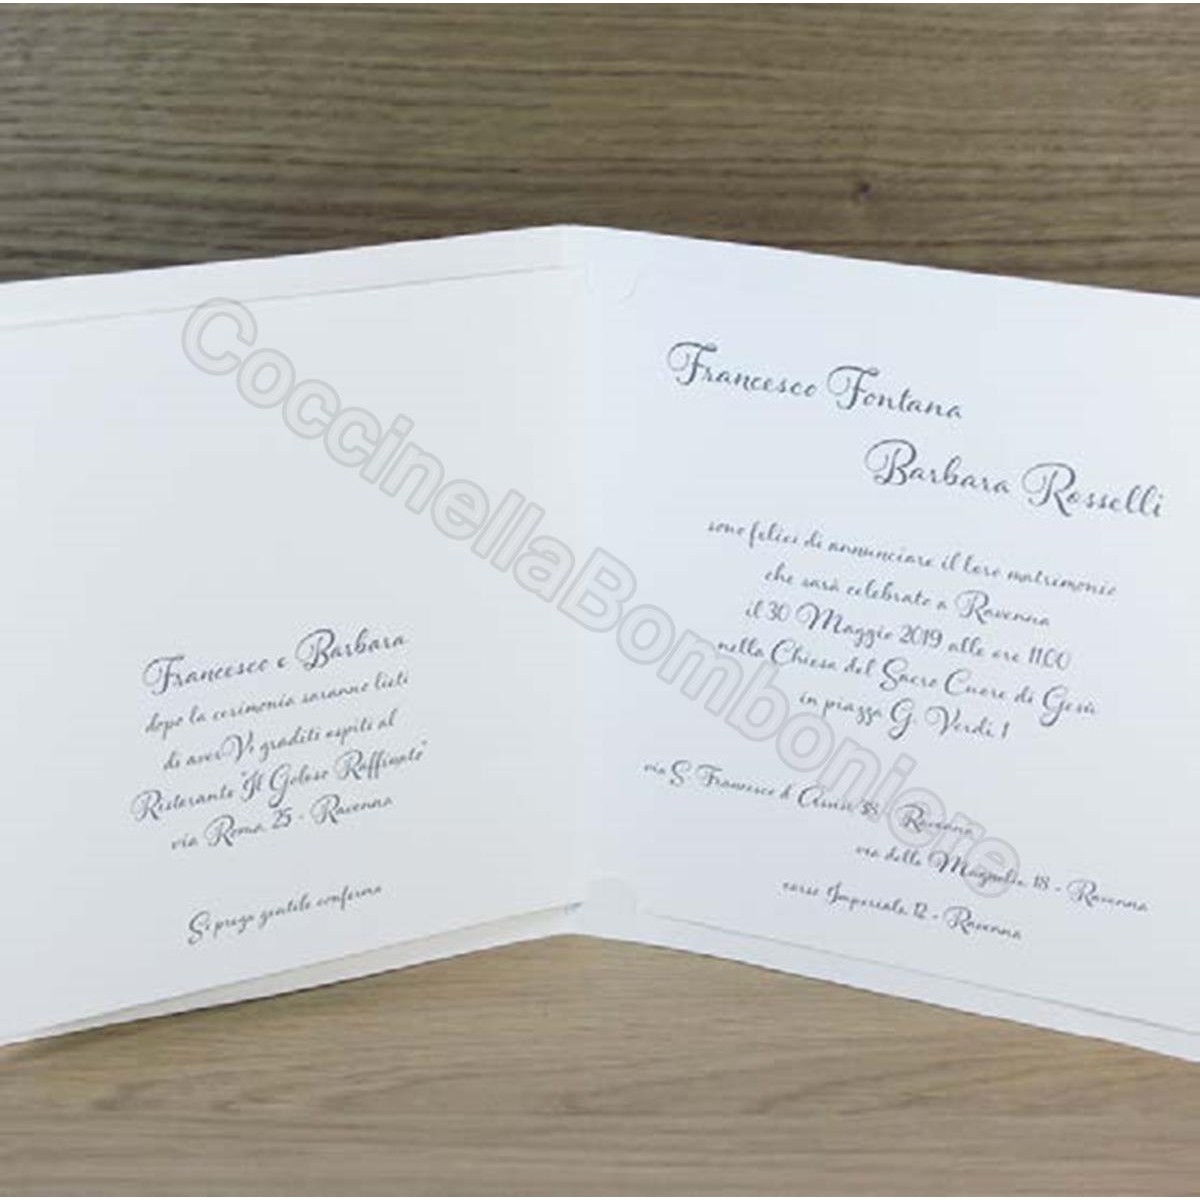 Francesco e Barbara
dopo la cerimonia saranno lieti
di averVi graditi ospiti al
Ristorante "Il Goloso Raffinato"
via Roma, 25 - Ravenna
Si prega gentile conferma
Francesco Fontana
Barbara Rosselli
sono felici di annunciare il loro matrimonio
che sarà celebrato a Ravenna
il 30 Maggio 2019 alle ore 11.00
nella Chiesa del Sacro Cuore di Gesù
in piazza G. Verdi, 1
via S. Francesco d'Assisi, 38 - Ravenna
via delle Magnolie, 18 - Ravenna
corso Imperiale, 12 - Ravenna
CoccinellaBomboniere